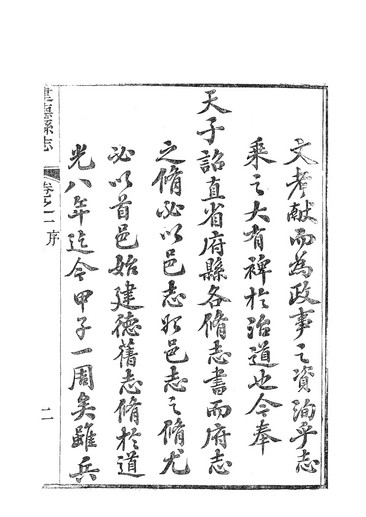 文考獻而為政事之資洵乎志
乘之大有裨於治道也今奉
天子詔直省府縣各脩志書而府志
之脩必以邑志始邑志之脩尤
必以首邑始建德舊志脩於道
光八年迄今甲子一周矣雖兵
建德縣志
卷之一
序
二